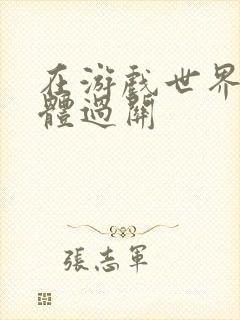 在游戲世界
體過關
張志軍